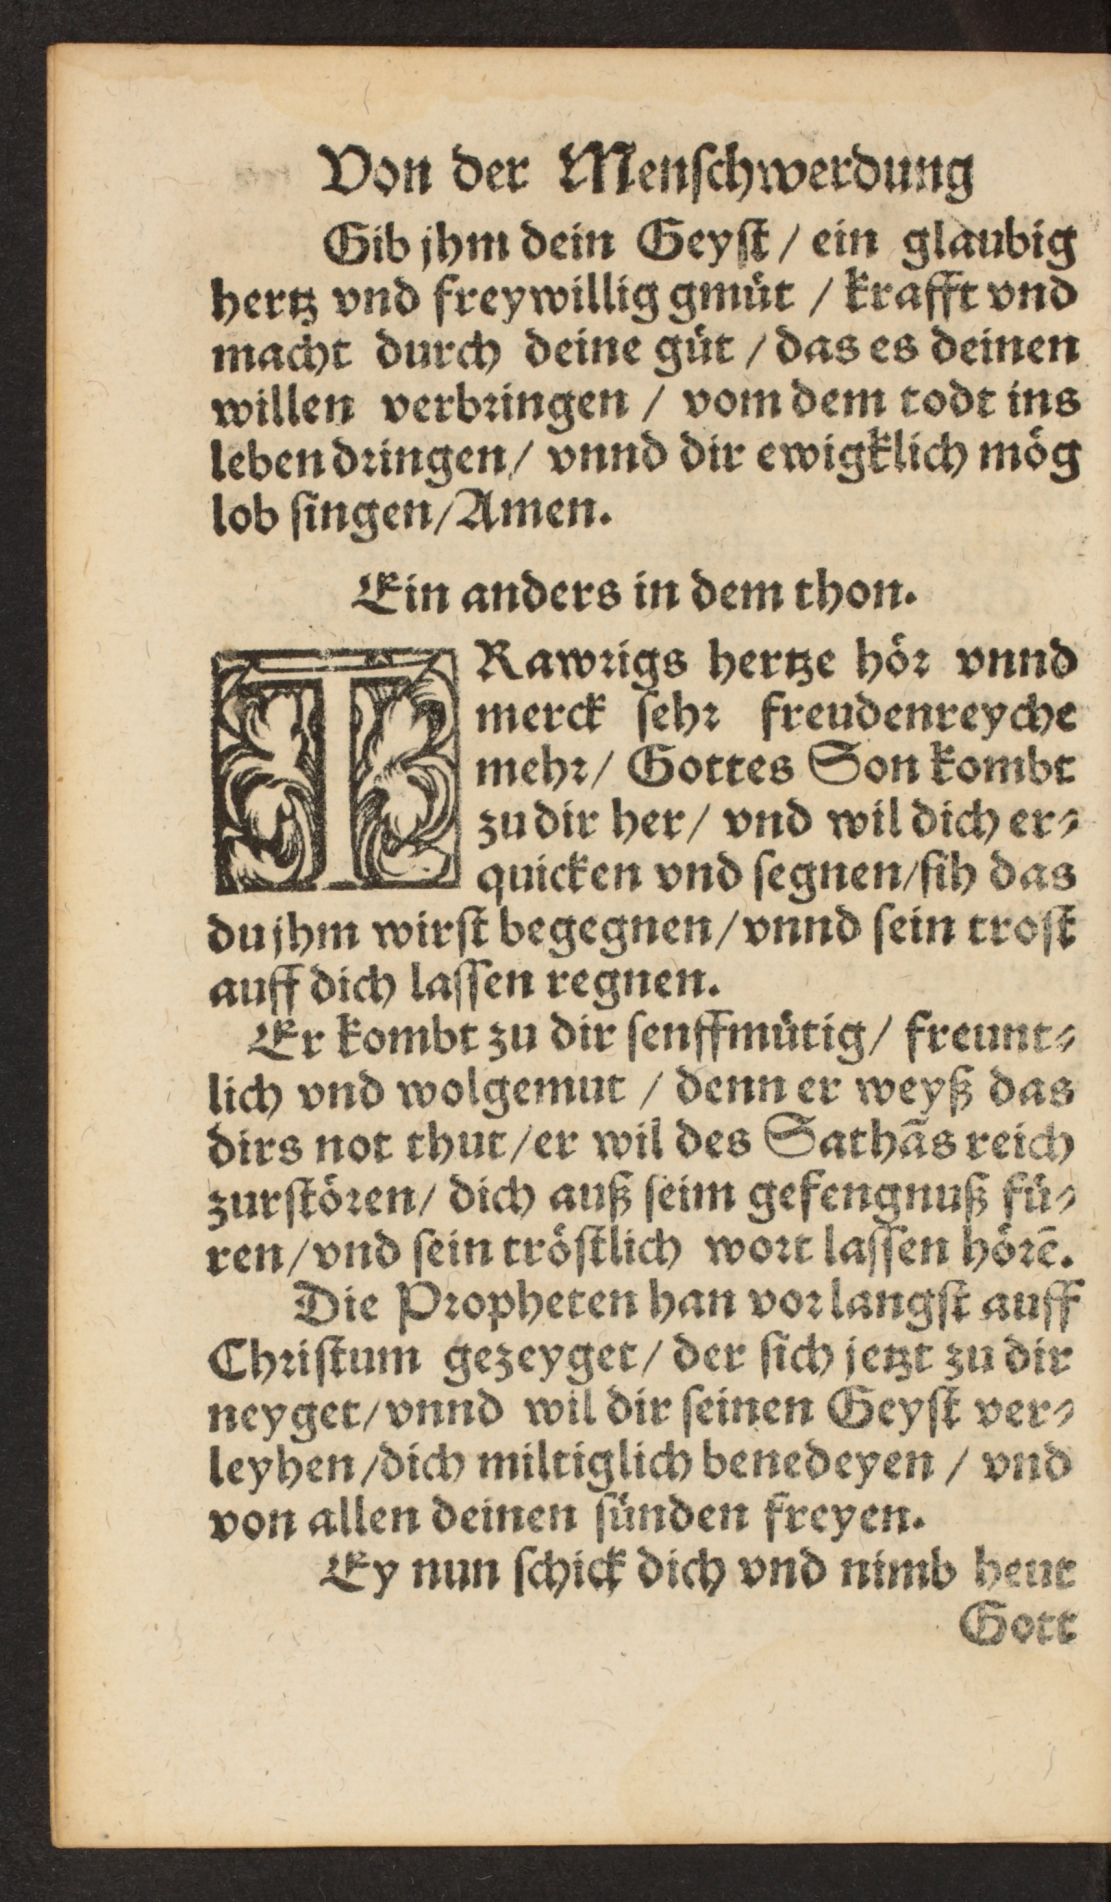 Von der Menſchwerdung
Gib jhm dein Geyſt / ein glaubig
hertz vnd freywillig gmüt / krafft vnd
macht durch deine güt / das es deinen
willen verbringen / vom dem todt ins
leben dringen / vnnd dir ewigklich mög
lob ſingen / Amen.
Ein anders in dem thon.
TRawrigs hertze hör vnnd
merck ſehr freudenreyche
mehr / Gottes Son kombt
zu dir her / vnd wil dich er⸗
quicken vnd ſegnen / ſih das
du jhm wirſt begegnen / vnnd ſein troſt
auff dich laſſen regnen.
Er kombt zu dir ſenffmütig / freunt⸗
lich vnd wolgemut / denn er weyß das
dirs not thut / er wil des Sathãs reich
zurſtören / dich auß ſeim gefengnuß fü⸗
ren / vnd ſein tröſtlich wort laſſen hörẽ.
Die Propheten han vor langſt auff
Chriſtum gezeyget / der ſich jetzt zu dir
neyget / vnnd wil dir ſeinen Geyſt ver⸗
leyhen / dich miltiglich benedeyen / vnd
von allen deinen ſünden freyen.
Ey nun ſchick dich vnd nimb heut
Gott